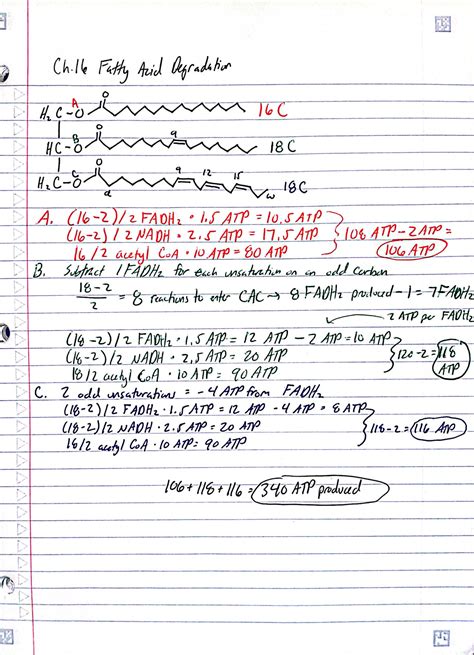 Ch.16 Fatty Acid Degradation
O
H₂C-O A 16C
O
HC-O B 9 18C
O
H₂C-O C α 9 12 15 ω 18C
A. (16-2)/2 FADH₂ · 1.5 ATP = 10.5 ATP
(16-2)/2 NADH · 2.5 ATP = 17.5 ATP } 108 ATP - 2 ATP =
16/2 acetyl CoA · 10 ATP = 80 ATP 106 ATP
B. Subtract 1 FADH₂ for each unsaturation on an odd carbon
18-2/2 = 8 reactions to enter CAC → 8 FADH₂ produced - 1 = 7 FADH₂
- 2 ATP per FADH₂
(18-2)/2 FADH₂ · 1.5 ATP = 12 ATP - 2 ATP = 10 ATP
(18-2)/2 NADH · 2.5 ATP = 20 ATP } 120-2 = 118 ATP
18/2 acetyl CoA · 10 ATP = 90 ATP
C. 2 odd unsaturations = -4 ATP from FADH₂
(18-2)/2 FADH₂ · 1.5 ATP = 12 ATP - 4 ATP = 8 ATP
(18-2)/2 NADH · 2.5 ATP = 20 ATP } 118-2 = 116 ATP
18/2 acetyl CoA · 10 ATP = 90 ATP
106 + 118 + 116 = 340 ATP produced